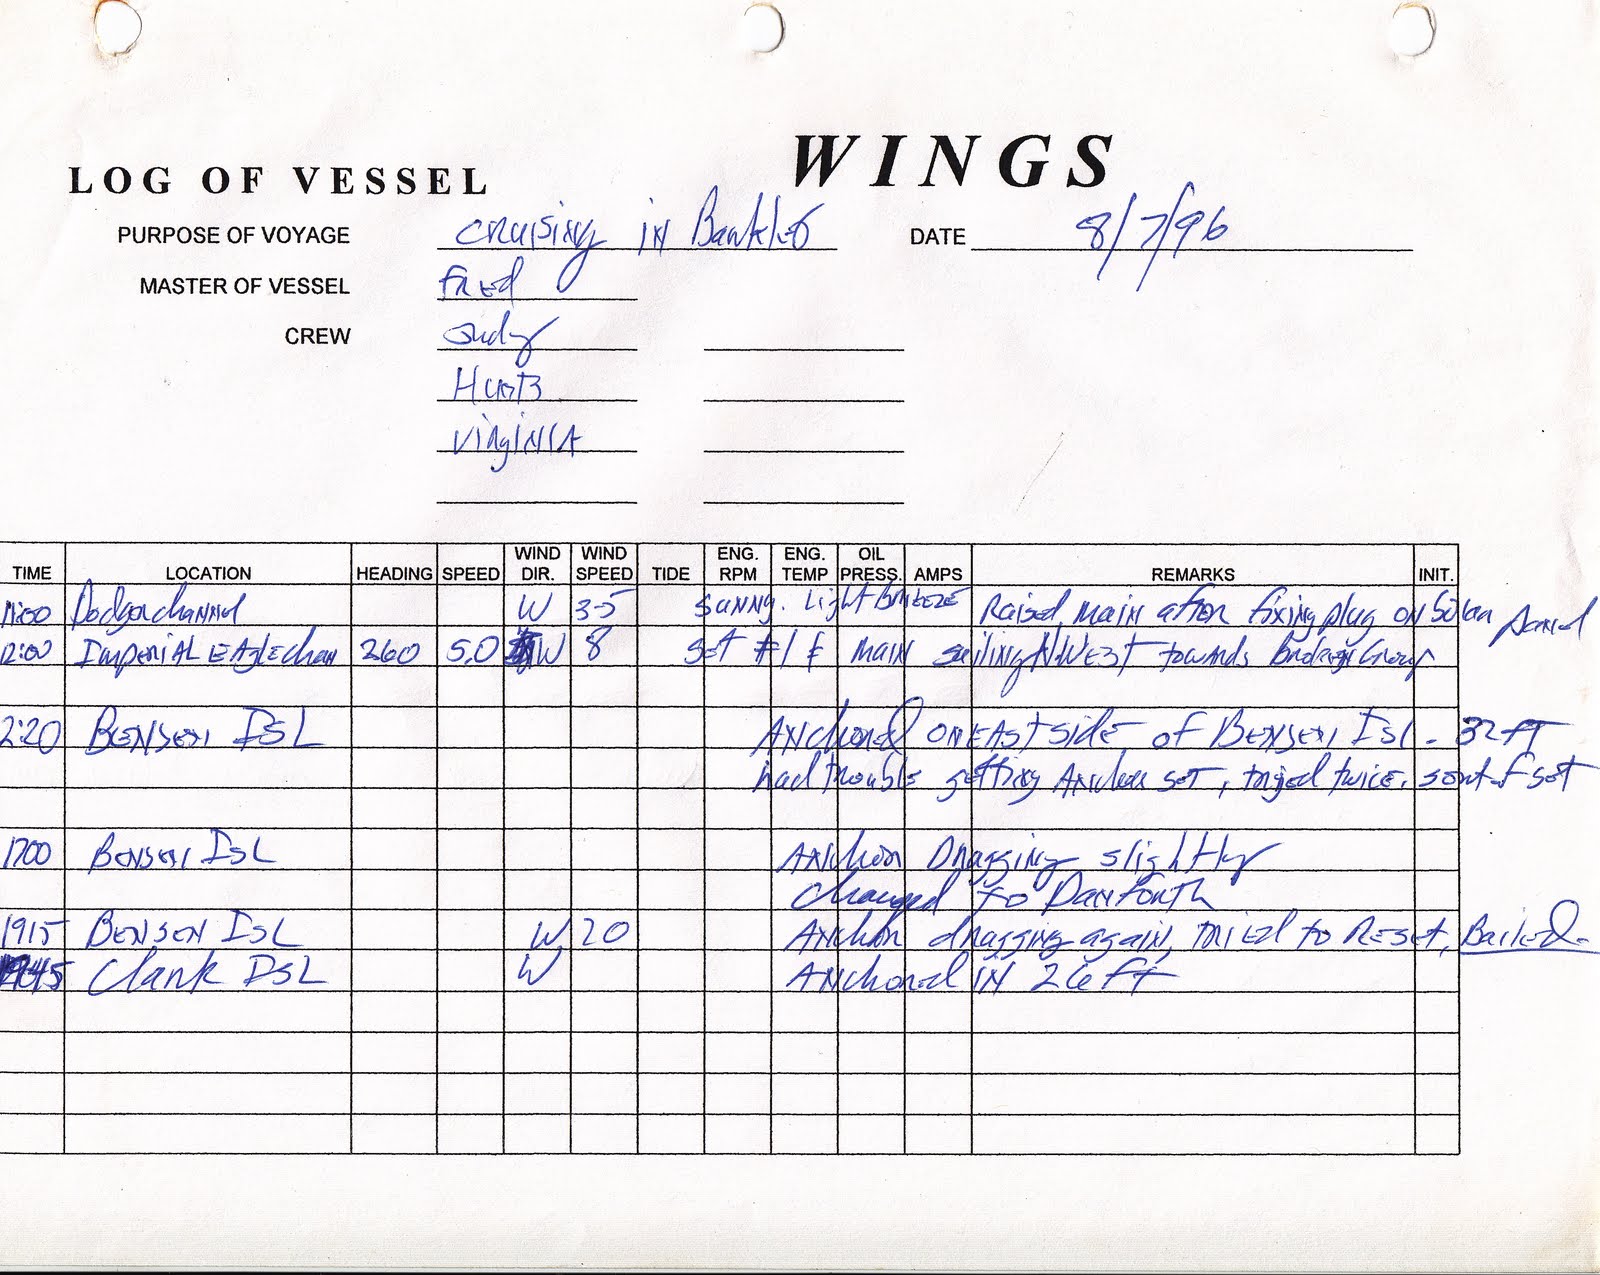 WINGS
LOG OF VESSEL
PURPOSE OF VOYAGE cruising in Barkley DATE 8/7/96
MASTER OF VESSEL Fred
CREW Judy
Virginia
TIME LOCATION HEADING SPEED WIND DIR. WIND SPEED TIDE ENG. RPM ENG. TEMP OIL PRESS. AMPS REMARKS INIT.
11:00 Dodger channel W 3-5 sunny. Light Breeze Raised main after fixing plug on Solar panel
12:00 Imperial Eagle chan 260 5.0 W 8 set #1 & main sailing NWest towards Broken Group
2:20 Bensen Isl Anchored on East side of Bensen Isl - 32 ft
had trouble getting Anchor set, tried twice. sort of set
1700 Bensen Isl Anchor Dragging slightly
changed to Danforth
1915 Bensen Isl W 20 Anchor dragging again, tried to Reset, Bailed.
Clark Isl W Anchored in 26 ft